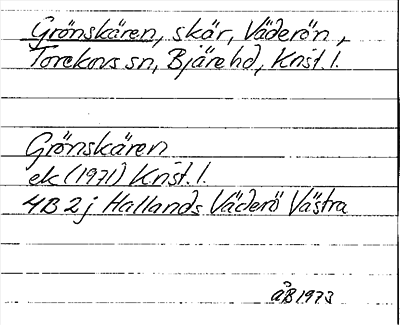 Grönskären, skär, Väderön,
Torekovs sn, Bjäre hd, Krist. l.
Grönskären
ek (1971) Krist. l.
4B 2j Hallands Väderö Västra
ÅB 1973